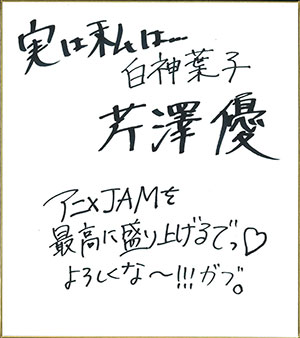 実は私は…
白神葉子
芹澤 優
アニメJAMを
最高に盛り上げるでっ♡
よろしくな〜!!!ガブ。